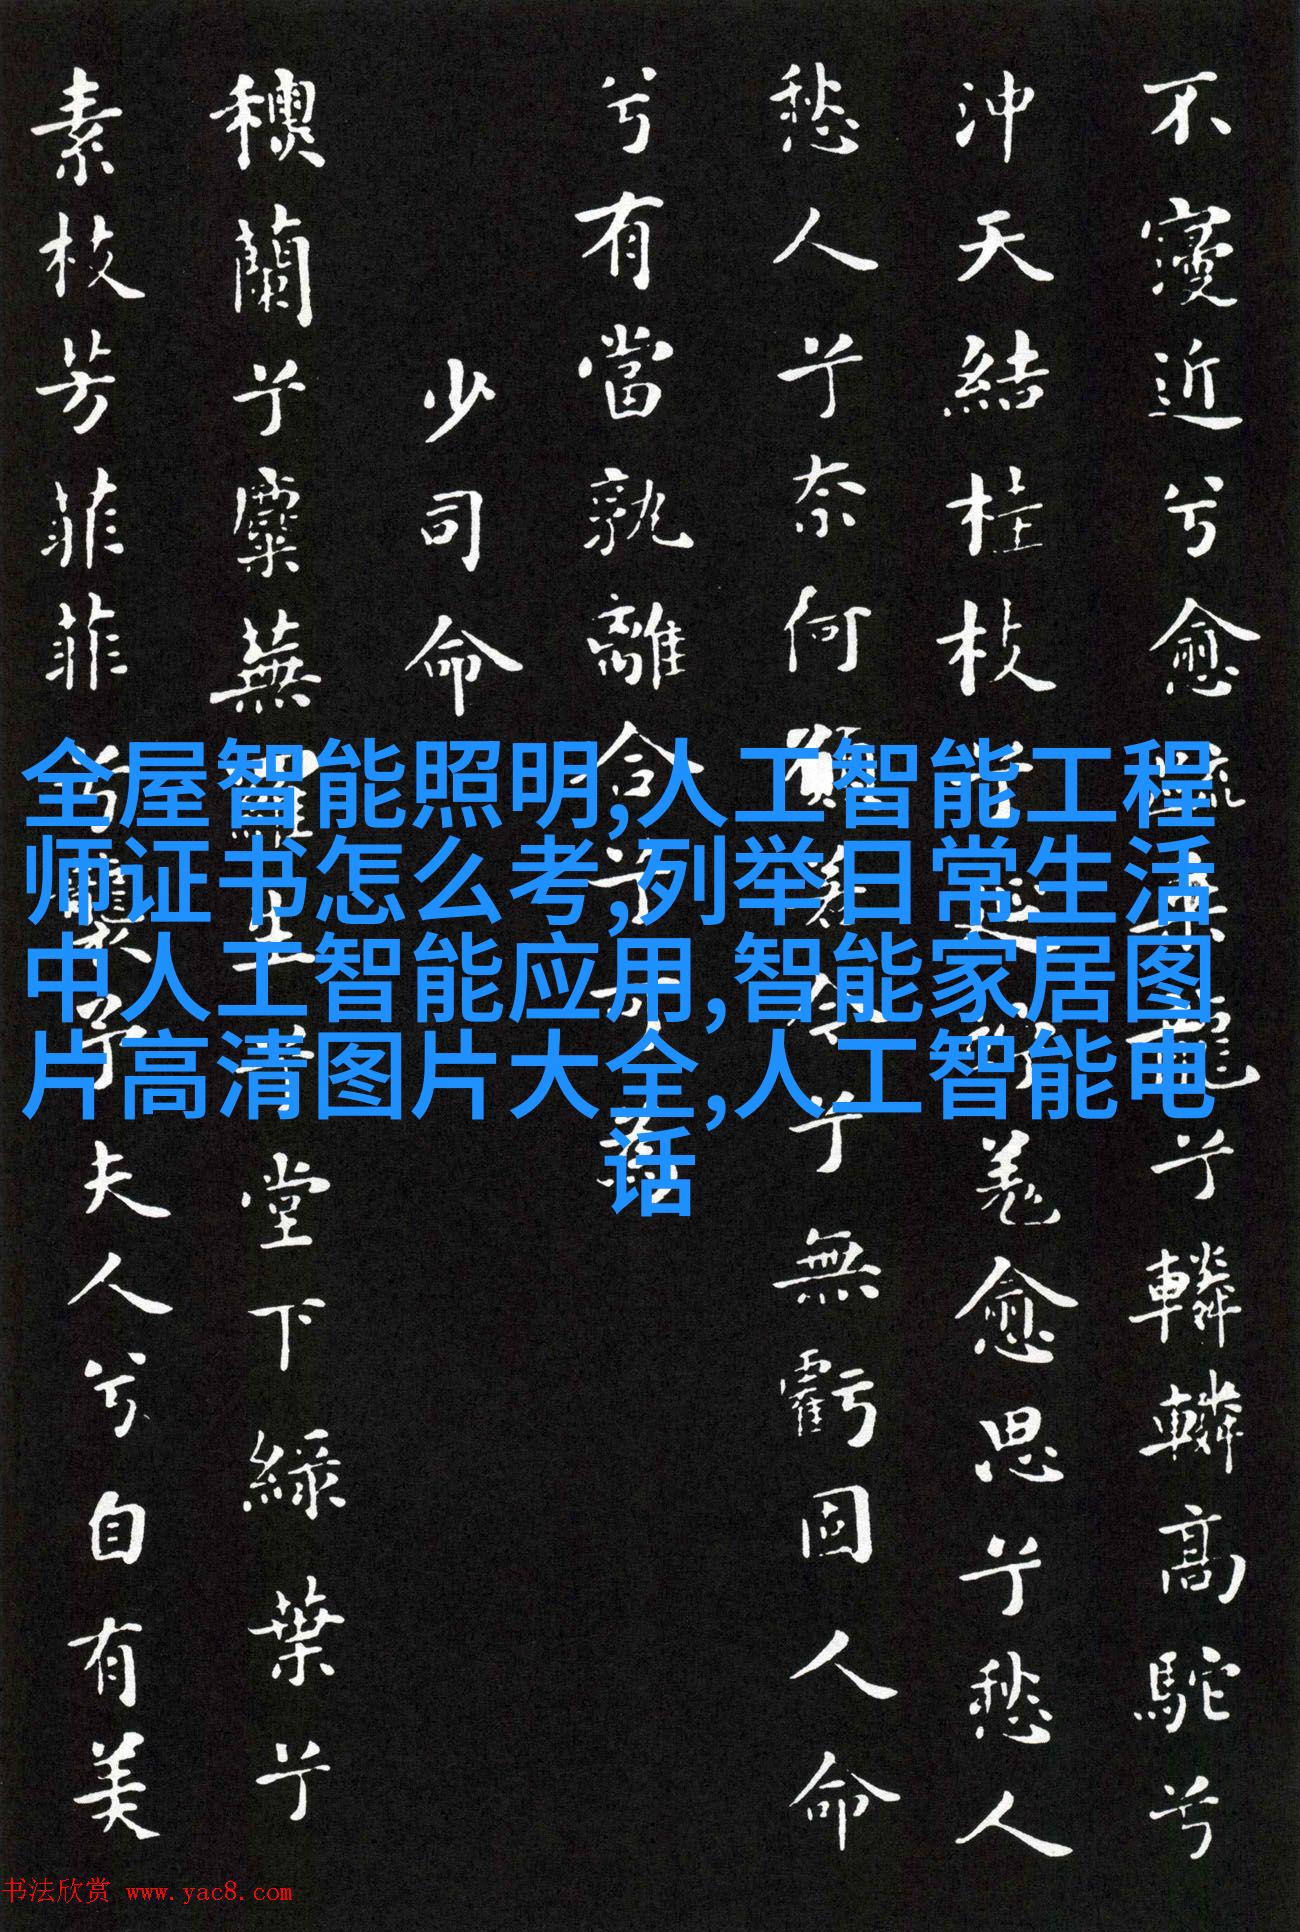 不寖近兮愈疏乘龍兮轔轔高駝兮
沖天結桂枝兮延竚羌愈思兮愁人
愁人兮奈何願若今兮無虧固人命
兮有當孰離合兮可為
少司命
蘭兮麋蕪羅生兮堂下綠葉兮
素枝芳菲菲兮襲予夫人兮自有美
全屋智能照明,人工智能工程
师证书怎么考,列举日常生活
中人工智能应用,智能家居图
片高清图片大全,人工智能电
话
书法欣赏 www.yac8.com